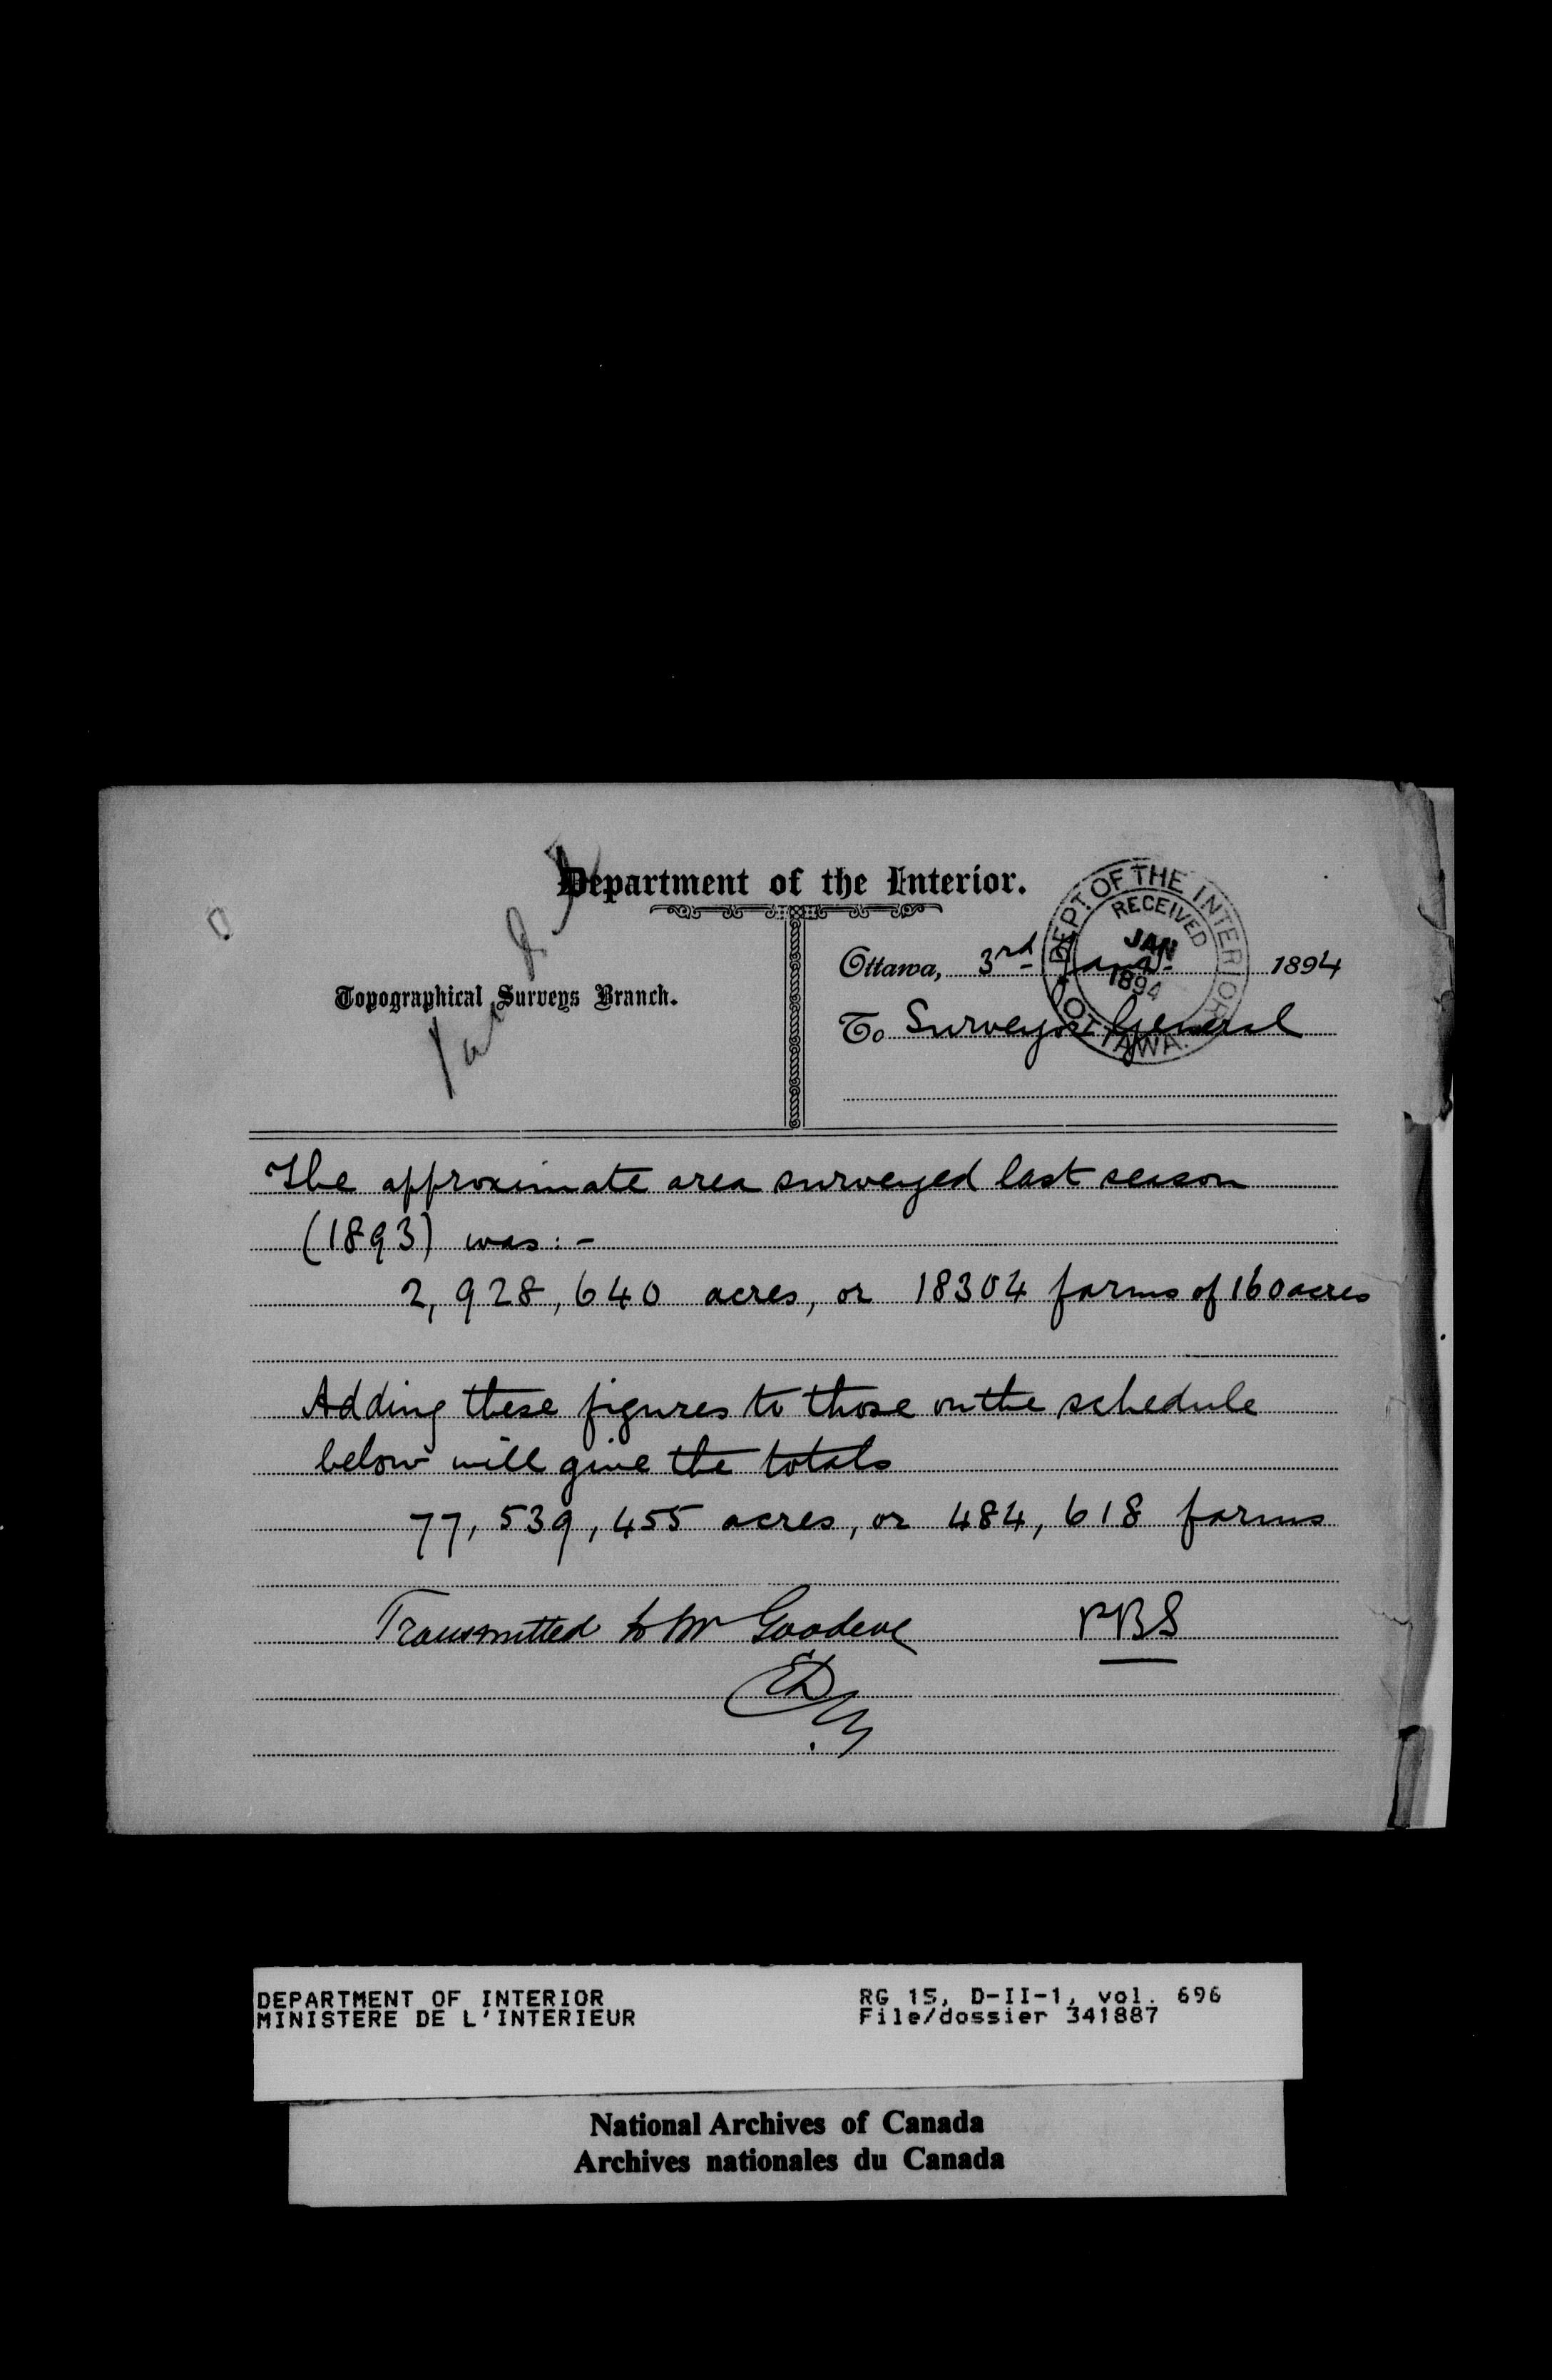 Department of the Interior.
Topographical Surveys Branch.
DEPT. OF THE INTERIOR
RECEIVED
JAN
4
1894
OTTAWA.
Ottawa, 3rd Jany. 1894
To Surveyor General
The approximate area surveyed last season
(1893) was:-
2,928,640 acres, or 18304 farms of 160 acres
Adding these figures to those on the schedule
below will give the totals
77,539,455 acres, or 484,618 farms
Transmitted to Mr Goodeve PBS
DEPARTMENT OF INTERIOR RG 15, D-II-1, vol. 696
MINISTERE DE L'INTERIEUR File/dossier 341887
National Archives of Canada
Archives nationales du Canada